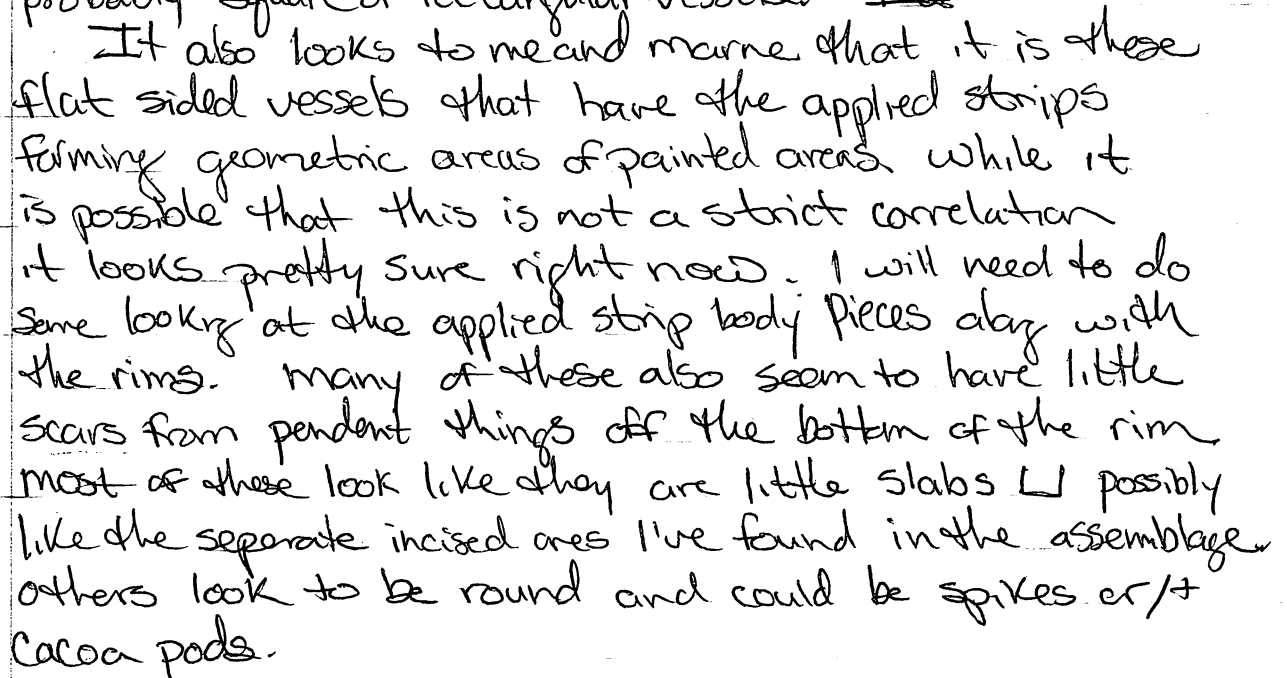 probably square or rectangular vessels
It also looks to me and marne that it is these
flat sided vessels that have the applied strips
forming geometric areas of painted areas while it
is possible that this is not a strict correlation
it looks pretty sure right now. I will need to do
some looking at the applied strip body pieces along with
the rims. many of these also seem to have little
scars from pendent things off the bottom of the rim
most of these look like they are little slabs possibly
like the separate incised ones I've found in the assemblage.
others look to be round and could be spikes or/+
cacoa pods.